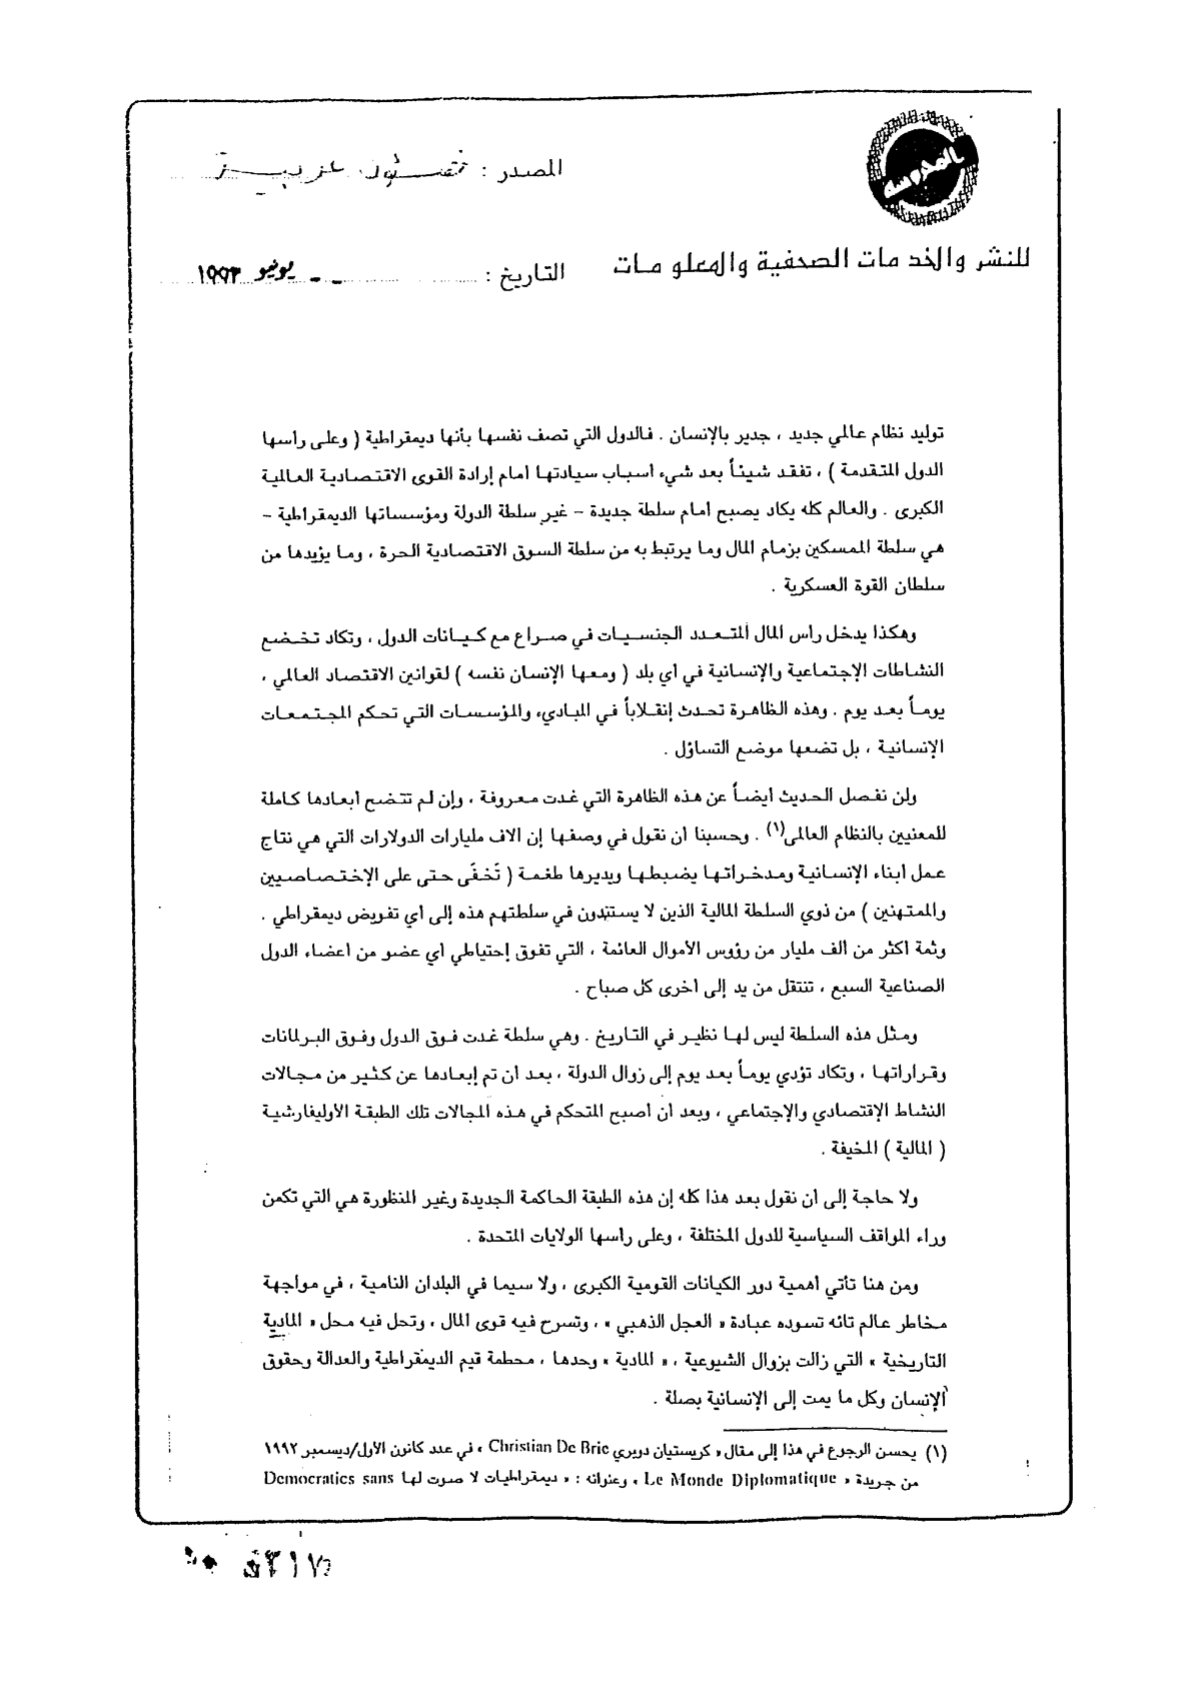 المحروسة
المصدر : شئون عربية
للنشر والخدمات الصحفية والمعلومات
التاريخ : يونيو ١٩٩٣
توليد نظام عالمي جديد ، جدير بالإنسان . فالدول التي تصف نفسها بأنها ديمقراطية ( وعلى رأسها
الدول المتقدمة ) ، تفقد شيئاً بعد شيء أسباب سيادتها أمام إرادة القوى الاقتصادية العالمية
الكبرى . والعالم كله يكاد يصبح أمام سلطة جديدة – غير سلطة الدولة ومؤسساتها الديمقراطية –
هي سلطة الممسكين بزمام المال وما يرتبط به من سلطة السوق الاقتصادية الحرة ، وما يؤيدها من
سلطان القوة العسكرية .
وهكذا يدخل رأس المال المتعدد الجنسيات في صراع مع كيانات الدول ، وتكاد تخضع
النشاطات الإجتماعية والإنسانية في أي بلد ( ومعها الإنسان نفسه ) لقوانين الاقتصاد العالمي ،
يوماً بعد يوم . وهذه الظاهرة تحدث إنقلاباً في المبادىء والمؤسسات التي تحكم المجتمعات
الإنسانية ، بل تضعها موضع التساؤل .
ولن نفصل الحديث أيضاً عن هذه الظاهرة التي غدت معروفة ، وإن لم تتضح أبعادها كاملة
للمعنيين بالنظام العالمى(١) . وحسبنا أن نقول في وصفها إن آلاف مليارات الدولارات التي هي نتاج
عمل أبناء الإنسانية ومدخراتها يضبطها ويديرها طغمة ( تَخفَى حتى على الإختصاصيين
والممتهنين ) من ذوي السلطة المالية الذين لا يستندون في سلطتهم هذه إلى أي تفويض ديمقراطي .
وثمة أكثر من ألف مليار من رؤوس الأموال العائمة ، التي تفوق إحتياطي أي عضو من أعضاء الدول
الصناعية السبع ، تنتقل من يد إلى أخرى كل صباح .
ومثل هذه السلطة ليس لها نظير في التاريخ . وهي سلطة غدت فوق الدول وفوق البرلمانات
وقراراتها ، وتكاد تؤدي يوماً بعد يوم إلى زوال الدولة ، بعد أن تم إبعادها عن كثير من مجالات
النشاط الإقتصادي والإجتماعي ، وبعد أن أصبح المتحكم في هذه المجالات تلك الطبقة الأوليغارشية
( المالية ) المخيفة .
ولا حاجة إلى أن نقول بعد هذا كله إن هذه الطبقة الحاكمة الجديدة وغير المنظورة هي التي تكمن
وراء المواقف السياسية للدول المختلفة ، وعلى رأسها الولايات المتحدة .
ومن هنا تأتي أهمية دور الكيانات القومية الكبرى ، ولا سيما في البلدان النامية ، في مواجهة
مخاطر عالم تائه تسوده عبادة « العجل الذهبي » ، وتسرح فيه قوى المال ، وتحل فيه محل « المادية
التاريخية » التي زالت بزوال الشيوعية ، « المادية » وحدها ، محطمة قيم الديمقراطية والعدالة وحقوق
الإنسان وكل ما يمت إلى الإنسانية بصلة .
(١) يحسن الرجوع في هذا إلى مقال « كريستيان دوبري Christian De Brie » في عدد كانون الأول/ديسمبر ١٩٩٢
من جريدة « Le Monde Diplomatique » وعنوانه : « ديمقراطيات لا صوت لها Democratics sans